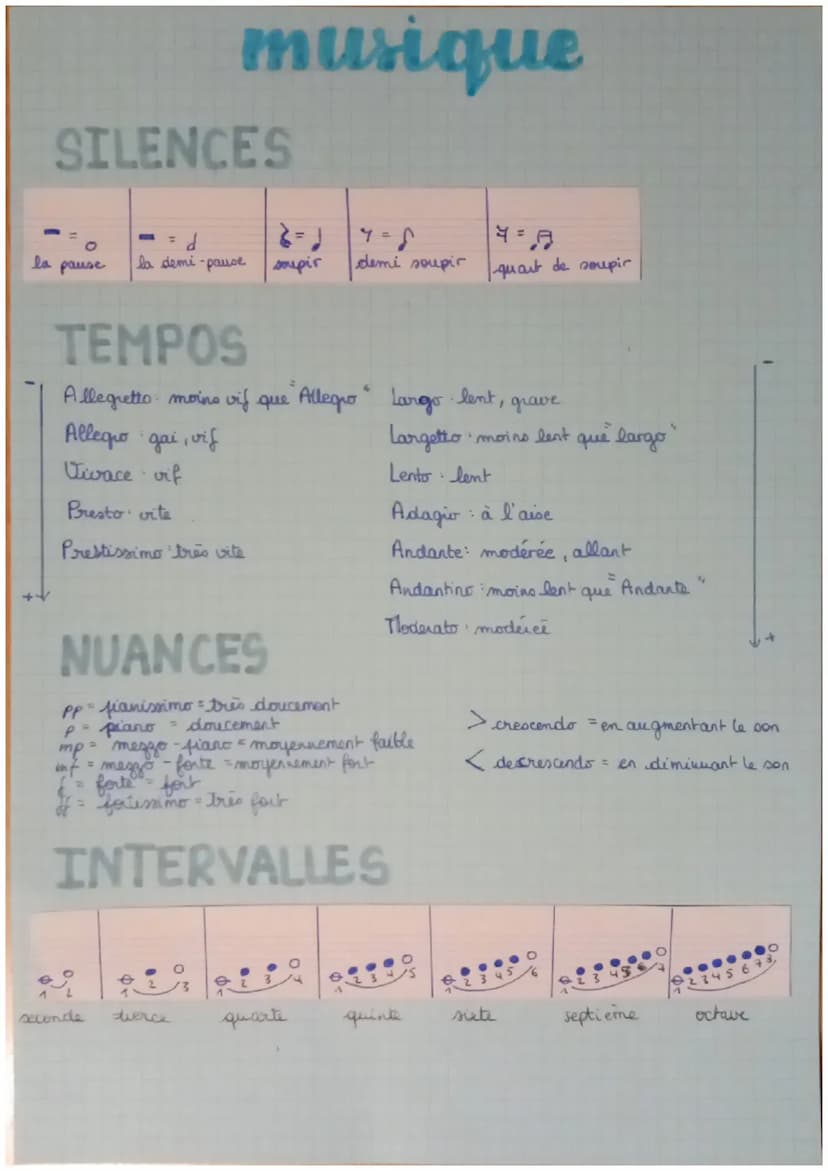 musique
SILENCES
= 
la pause
=
la demi-pause
=
soupir
=
demi soupir
=
quart de soupir
TEMPOS
-
Allegretto : moins vif que "Allegro"
Allegro : gai, vif
Vivace : vif
Presto : vite
Prestissimo : très vite
+
Largo : lent, grave
Largetto : moins lent que "largo"
Lento : lent
Adagio : à l'aise
Andante : modérée, allant
Andantino : moins lent que "Andante"
Moderato : modéréé
-
+
NUANCES
pp = pianissimo = très doucement
p = piano = doucement
mp = mezzo-piano = moyennement faible
mf = mezzo-forte = moyennement fort
f = forte = fort
ff = fortissimo = très fort
> crescendo = en augmentant le son
< descrescendo = en diminuant le son
INTERVALLES
1 2
1 2 3
1 2 3 4
1 2 3 4 5
1 2 3 4 5 6
1 2 3 4 5 6 7
1 2 3 4 5 6 7 8
seconde tierce quarte quinte sixte septième octave